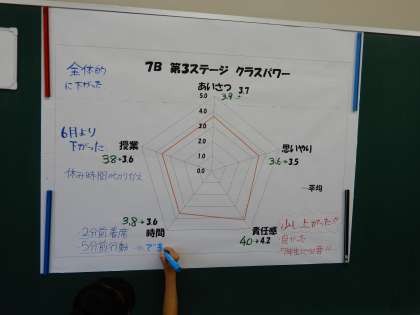 全体的
に下がった
7B 第3ステージ クラスパワー
あいさつ 3.7
3.9
5.0
4.0
3.0
2.0
1.0
0.0
6月より
下がった
授業
3.8→3.6
休み時間
思いやり
3.6→3.5
平均
3.8→3.6
時間
2分前着席
5分前行動
責任感
4.0→4.2
少し上がった
良かった